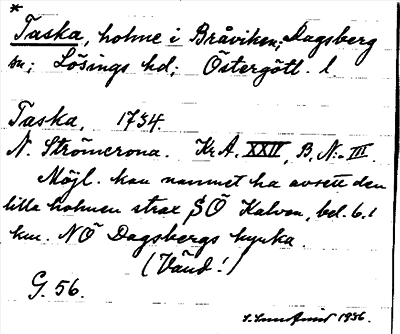 *
Taska, holme i Bråviken; Dagsberg
sn; Lösings hd; Östergötl. l
Taska, 1734.
N. Strömcrona. Kr. A. XXII, B. N:. III.
Möjl. kan namnet ha avsett den
lilla holmen strax SÖ Kalven, bel. 6.1
km. NÖ Dagsbergs kyrka.
(Vänd!)
G. 56.
1936.